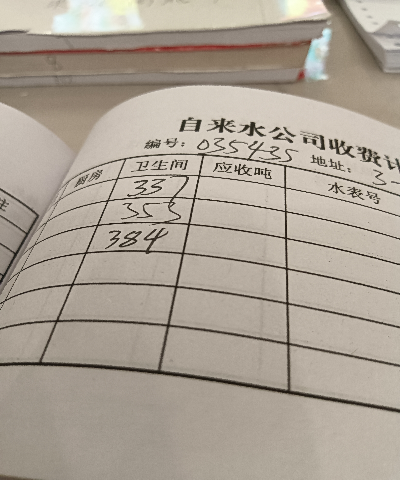 自来水公司收费
编号: 035435 地址: 3-
厨房 卫生间 应收吨 水表号
337
353
384